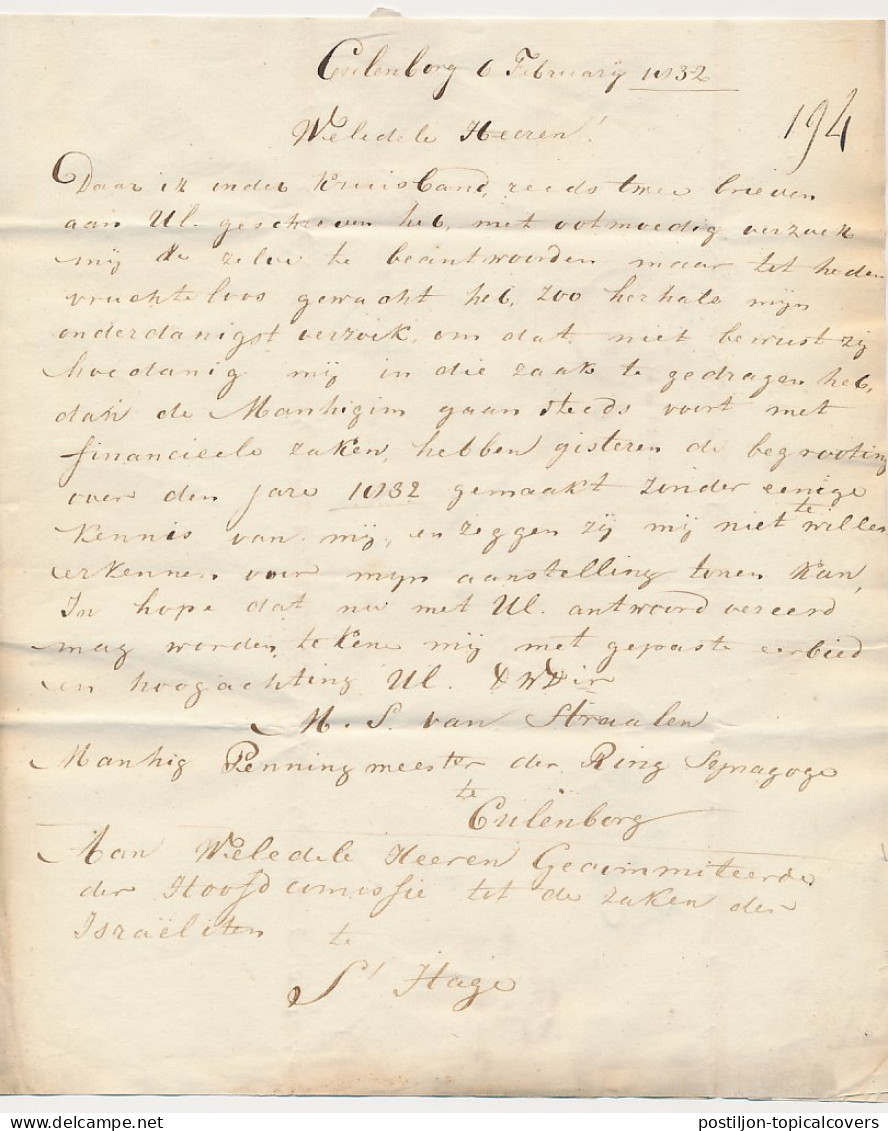 Culenborg 6 Februarij 1832
194
Weledele Heeren!
Daar ik onder Kruisband, reeds twee brieven
aan Ul. geschreven heb, met ootmoedig verzoek
mij de zelve te beäntwoorden maar tot heden
vruchteloos gewacht heb, zoo herhale mijn
onderdanigst verzoek, om dat niet bewust zij
hoedanig mij in die zaak te gedragen heb,
dan de Manhigim gaan steeds voort met
financieele zaken, hebben gisteren de begrooting
over den jare 1832 gemaakt zonder eenige
kennis van mij, en zeggen zij mij niet te willen
erkennen voor mijn aanstelling tonen kan,
In hope dat nu met Ul. antwoord vereerd
mag worden, teken mij met gepaste eerbied
en hoogachting Ul. DWDir
M. S. van Straalen
Manhig Penningmeester der Ring Synagoge
te
Culenborg
Aan Weledele Heeren Gecommiteerde
der Hoofdcomissie tot de zaken der
Israëliten te
S' Hage
postiljon-topicalcovers